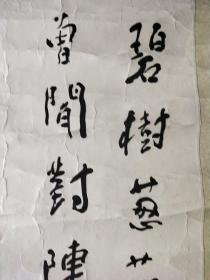 碧樹蔥
曾聞對陳